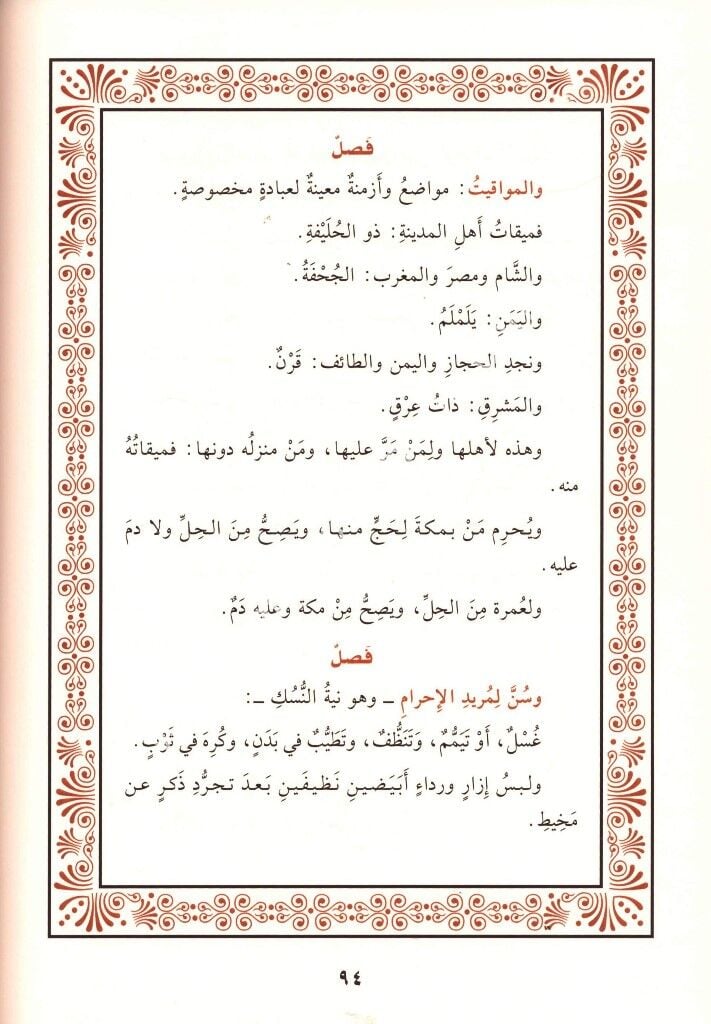 فَصلٌ
والمواقيتُ: مواضعُ وأَزمنةٌ معينةٌ لعبادةٍ مخصوصةٍ.
فميقاتُ أَهلِ المدينةِ: ذو الحُلَيْفةِ.
والشَّام ومصرَ والمغرب: الجُحْفَةُ.
واليَمَنِ: يَلَمْلَمُ.
ونجدِ الحجازِ واليمن والطائف: قَرْنٌ.
والمَشرِقِ: ذاتُ عِرْقٍ.
وهذه لأهلها ولِمَنْ مَرَّ عليها، ومَنْ منزلُه دونها: فميقاتُهُ
منه.
ويُحرِم مَنْ بمكةَ لِحَجٍّ منها، ويَصِحُّ مِنَ الحِلِّ ولا دمَ
عليه.
ولعُمرة مِنَ الحِلِّ، ويَصِحُّ مِنْ مكة وعليه دَمٌ.
فَصلٌ
وسُنَّ لِمُريدِ الإِحرامِ ـ وهو نيةُ النُّسُكِ ـ:
غُسْلٌ، أَوْ تَيَمُّمٌ، وَتَنَظُّفٌ، وتَطَيُّبٌ في بَدَنٍ، وكُرِهَ في ثَوْبٍ.
ولبسُ إِزارٍ ورداءٍ أَبيَضينِ نَظيفَينِ بَعدَ تجرُّدِ ذَكرٍ عن
مَخِيطِ.
٩٤